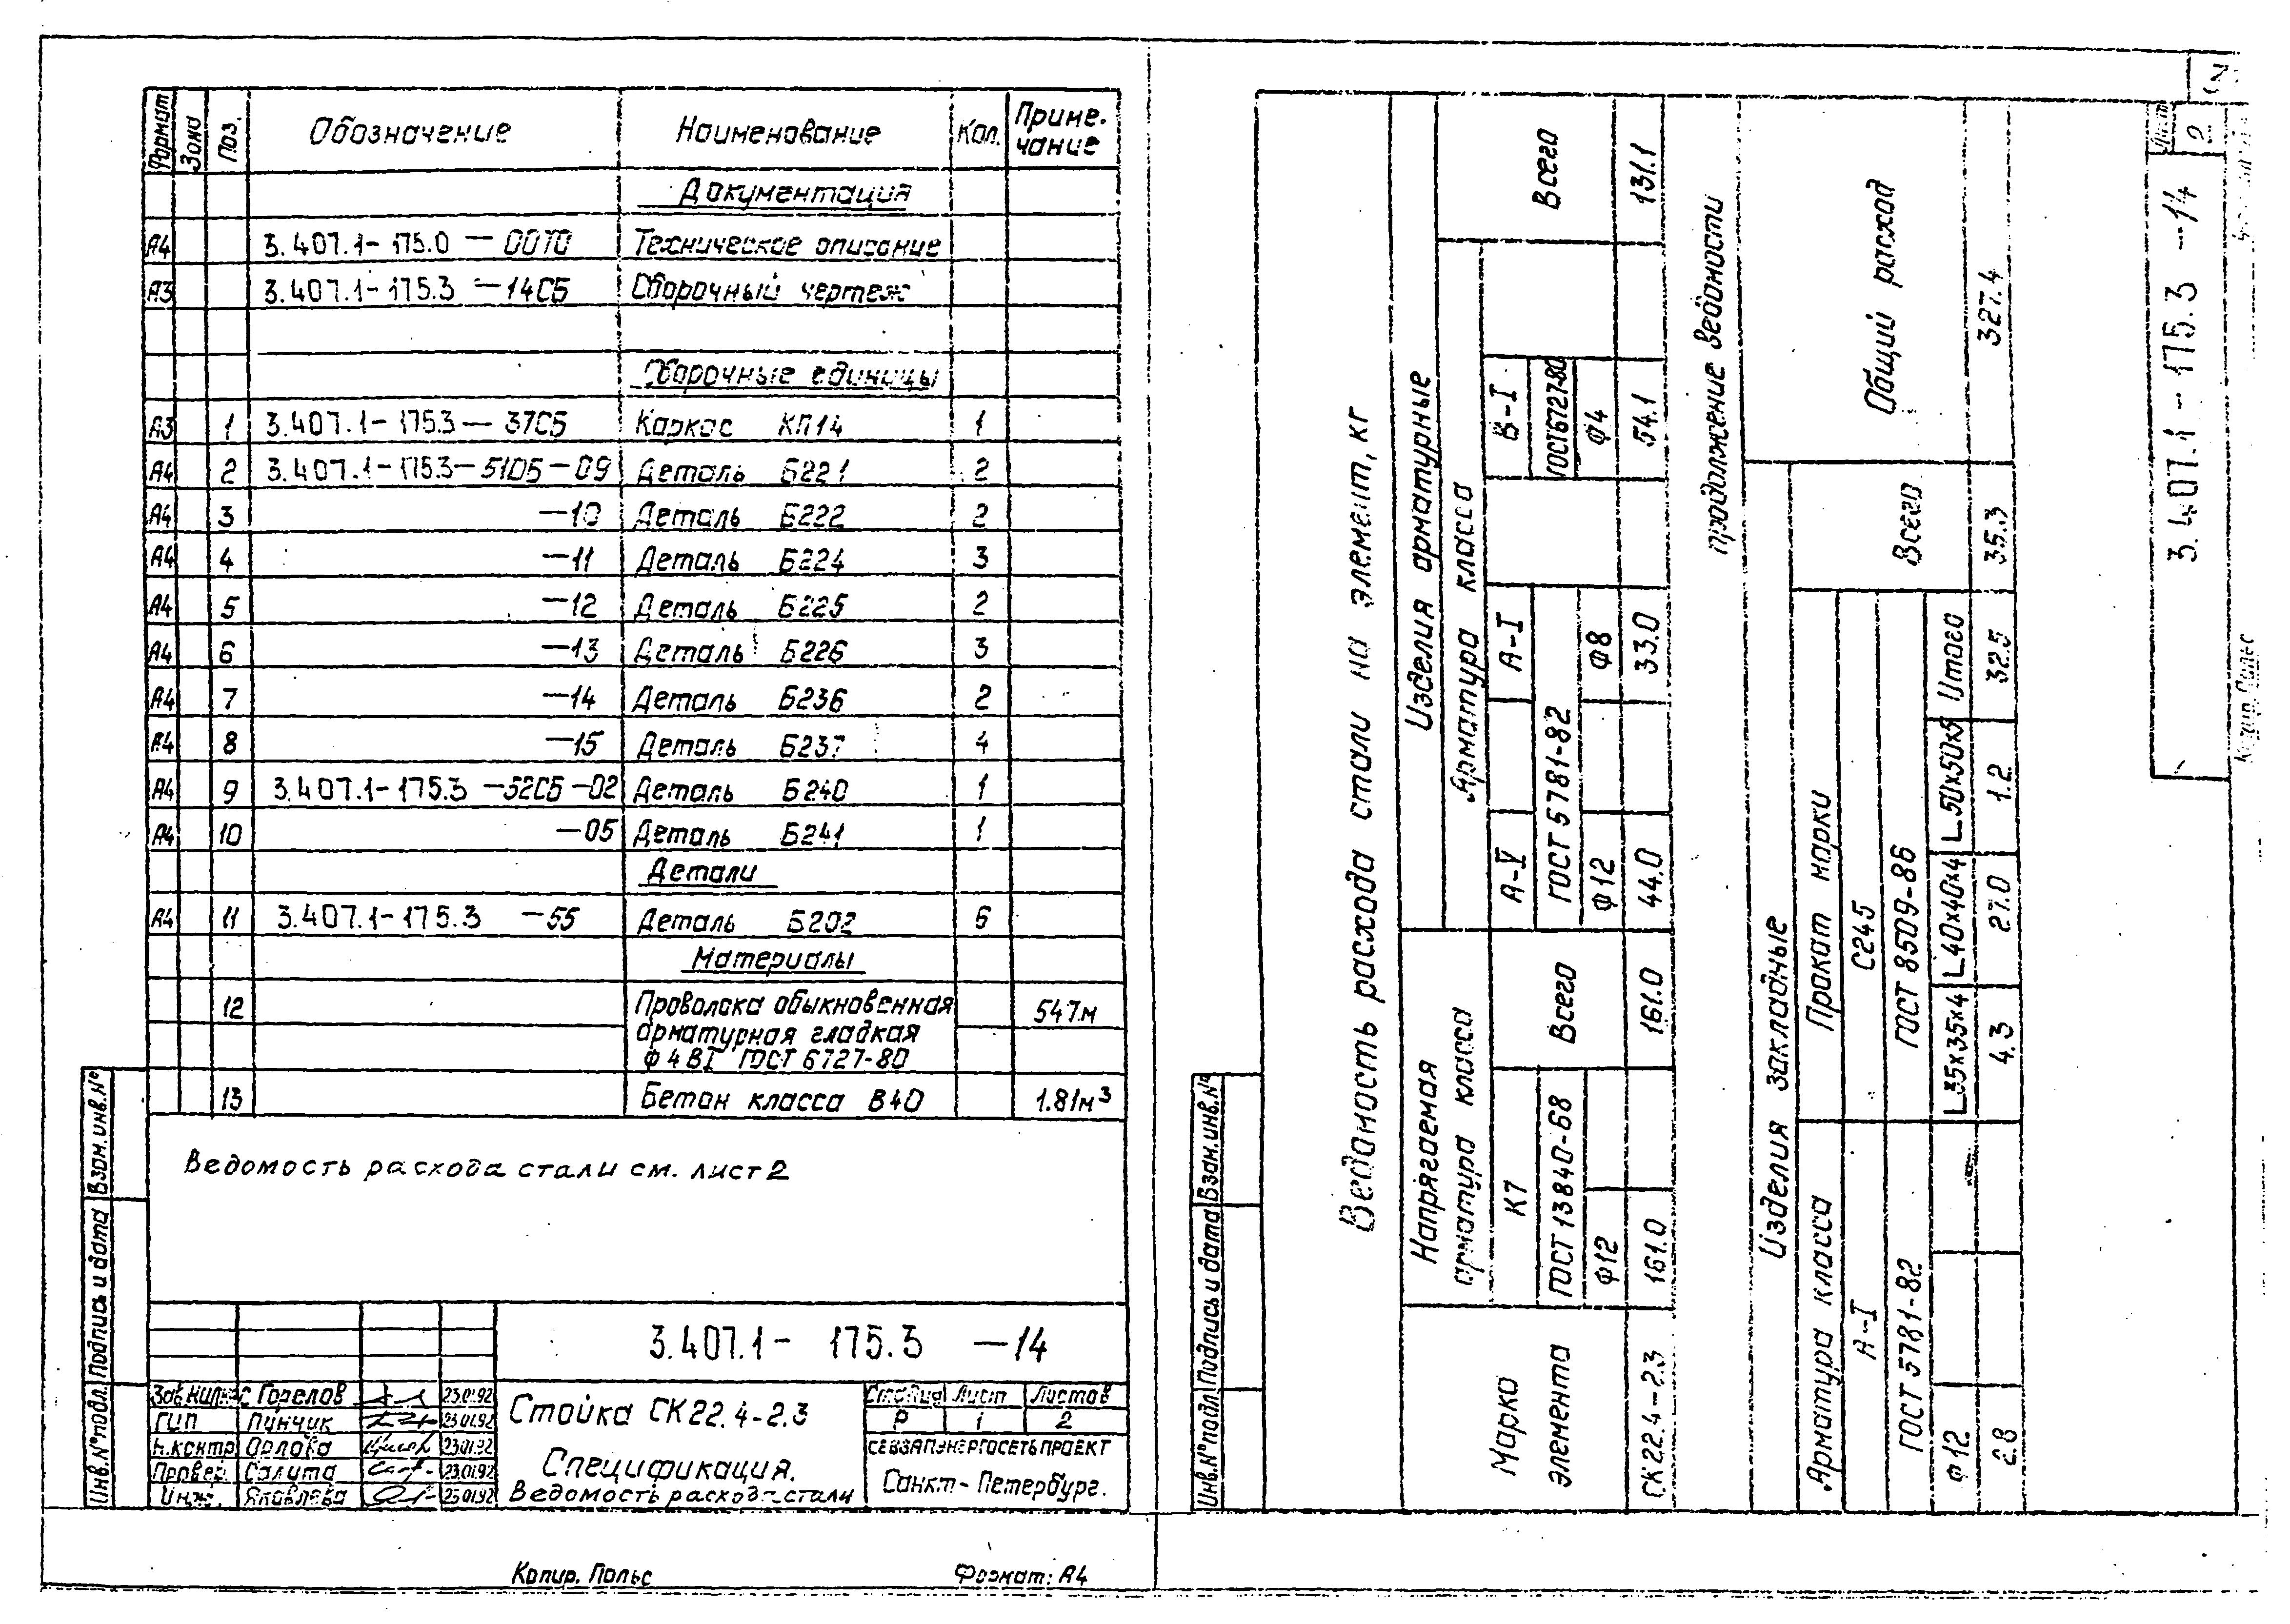 Формат Зона Поз. Обозначение Наименование Кол. Приме-чание
Документация
А4 3.407.1-175.0 —00ТО Техническое описание
А3 3.407.1-175.3 —14СБ Сборочный чертеж
Сборочные единицы
А3 1 3.407.1-175.3— 37СБ Каркас КП14 1
А4 2 3.407.1-175.3—51СБ—09 Деталь Б221 2
А4 3 —10 Деталь Б222 2
А4 4 —11 Деталь Б224 3
А4 5 —12 Деталь Б225 2
А4 6 —13 Деталь Б226 3
А4 7 —14 Деталь Б236 2
А4 8 —15 Деталь Б237 4
А4 9 3.407.1-175.3 —52СБ—02 Деталь Б240 1
А4 10 —05 Деталь Б241 1
Детали
А4 11 3.407.1-175.3 —55 Деталь Б202 6
Материалы
12 Проволока обыкновенная 547м
арматурная гладкая
Ф4ВI ГОСТ 6727-80
13 Бетон класса В40 1.81м³
Ведомость расхода стали см. лист 2
Инв.№подл. Подпись и дата Взам.инв.№
3.407.1- 175.3 —14
Горелов 23.01.92
ГИП Пинчик 23.01.92
Н.контр Орлова 23.01.92
Провер. Салита 23.01.92
Инж. Яковлева 23.01.92
Стойка СК22.4-2.3
Спецификация.
Ведомость расхода стали
Стадия Лист Листов
Р 1 2
СЕВЗАПЭНЕРГОСЕТЬПРОЕКТ
Санкт-Петербург.
Копир. Польс Формат: А4
Ведомость расхода стали на элемент, кг
Марка элемента
Напрягаемая арматура класса
Изделия арматурные
Арматура класса
К7 Всего А-V А-I В-I Всего
ГОСТ 13840-68 ГОСТ 5781-82 ГОСТ6727-80
Ф12 Ф12 Ф8 Ф4
СК22.4-2.3 161.0 161.0 44.0 33.0 54.1 131.1
продолжение ведомости
Изделия закладные Общий расход
Арматура класса Прокат марки Всего
А-I С245
ГОСТ 5781-82 ГОСТ 8509-86
Ф12 L35х35х4 L40х40х4 L50х50х5 Итого
2.8 4.3 27.0 1.2 32.5 35.3 327.4
Инв.№подл. Подпись и дата Взам.инв.№
3.407.1-175.3 —14 Лист 2
Копир. Польс